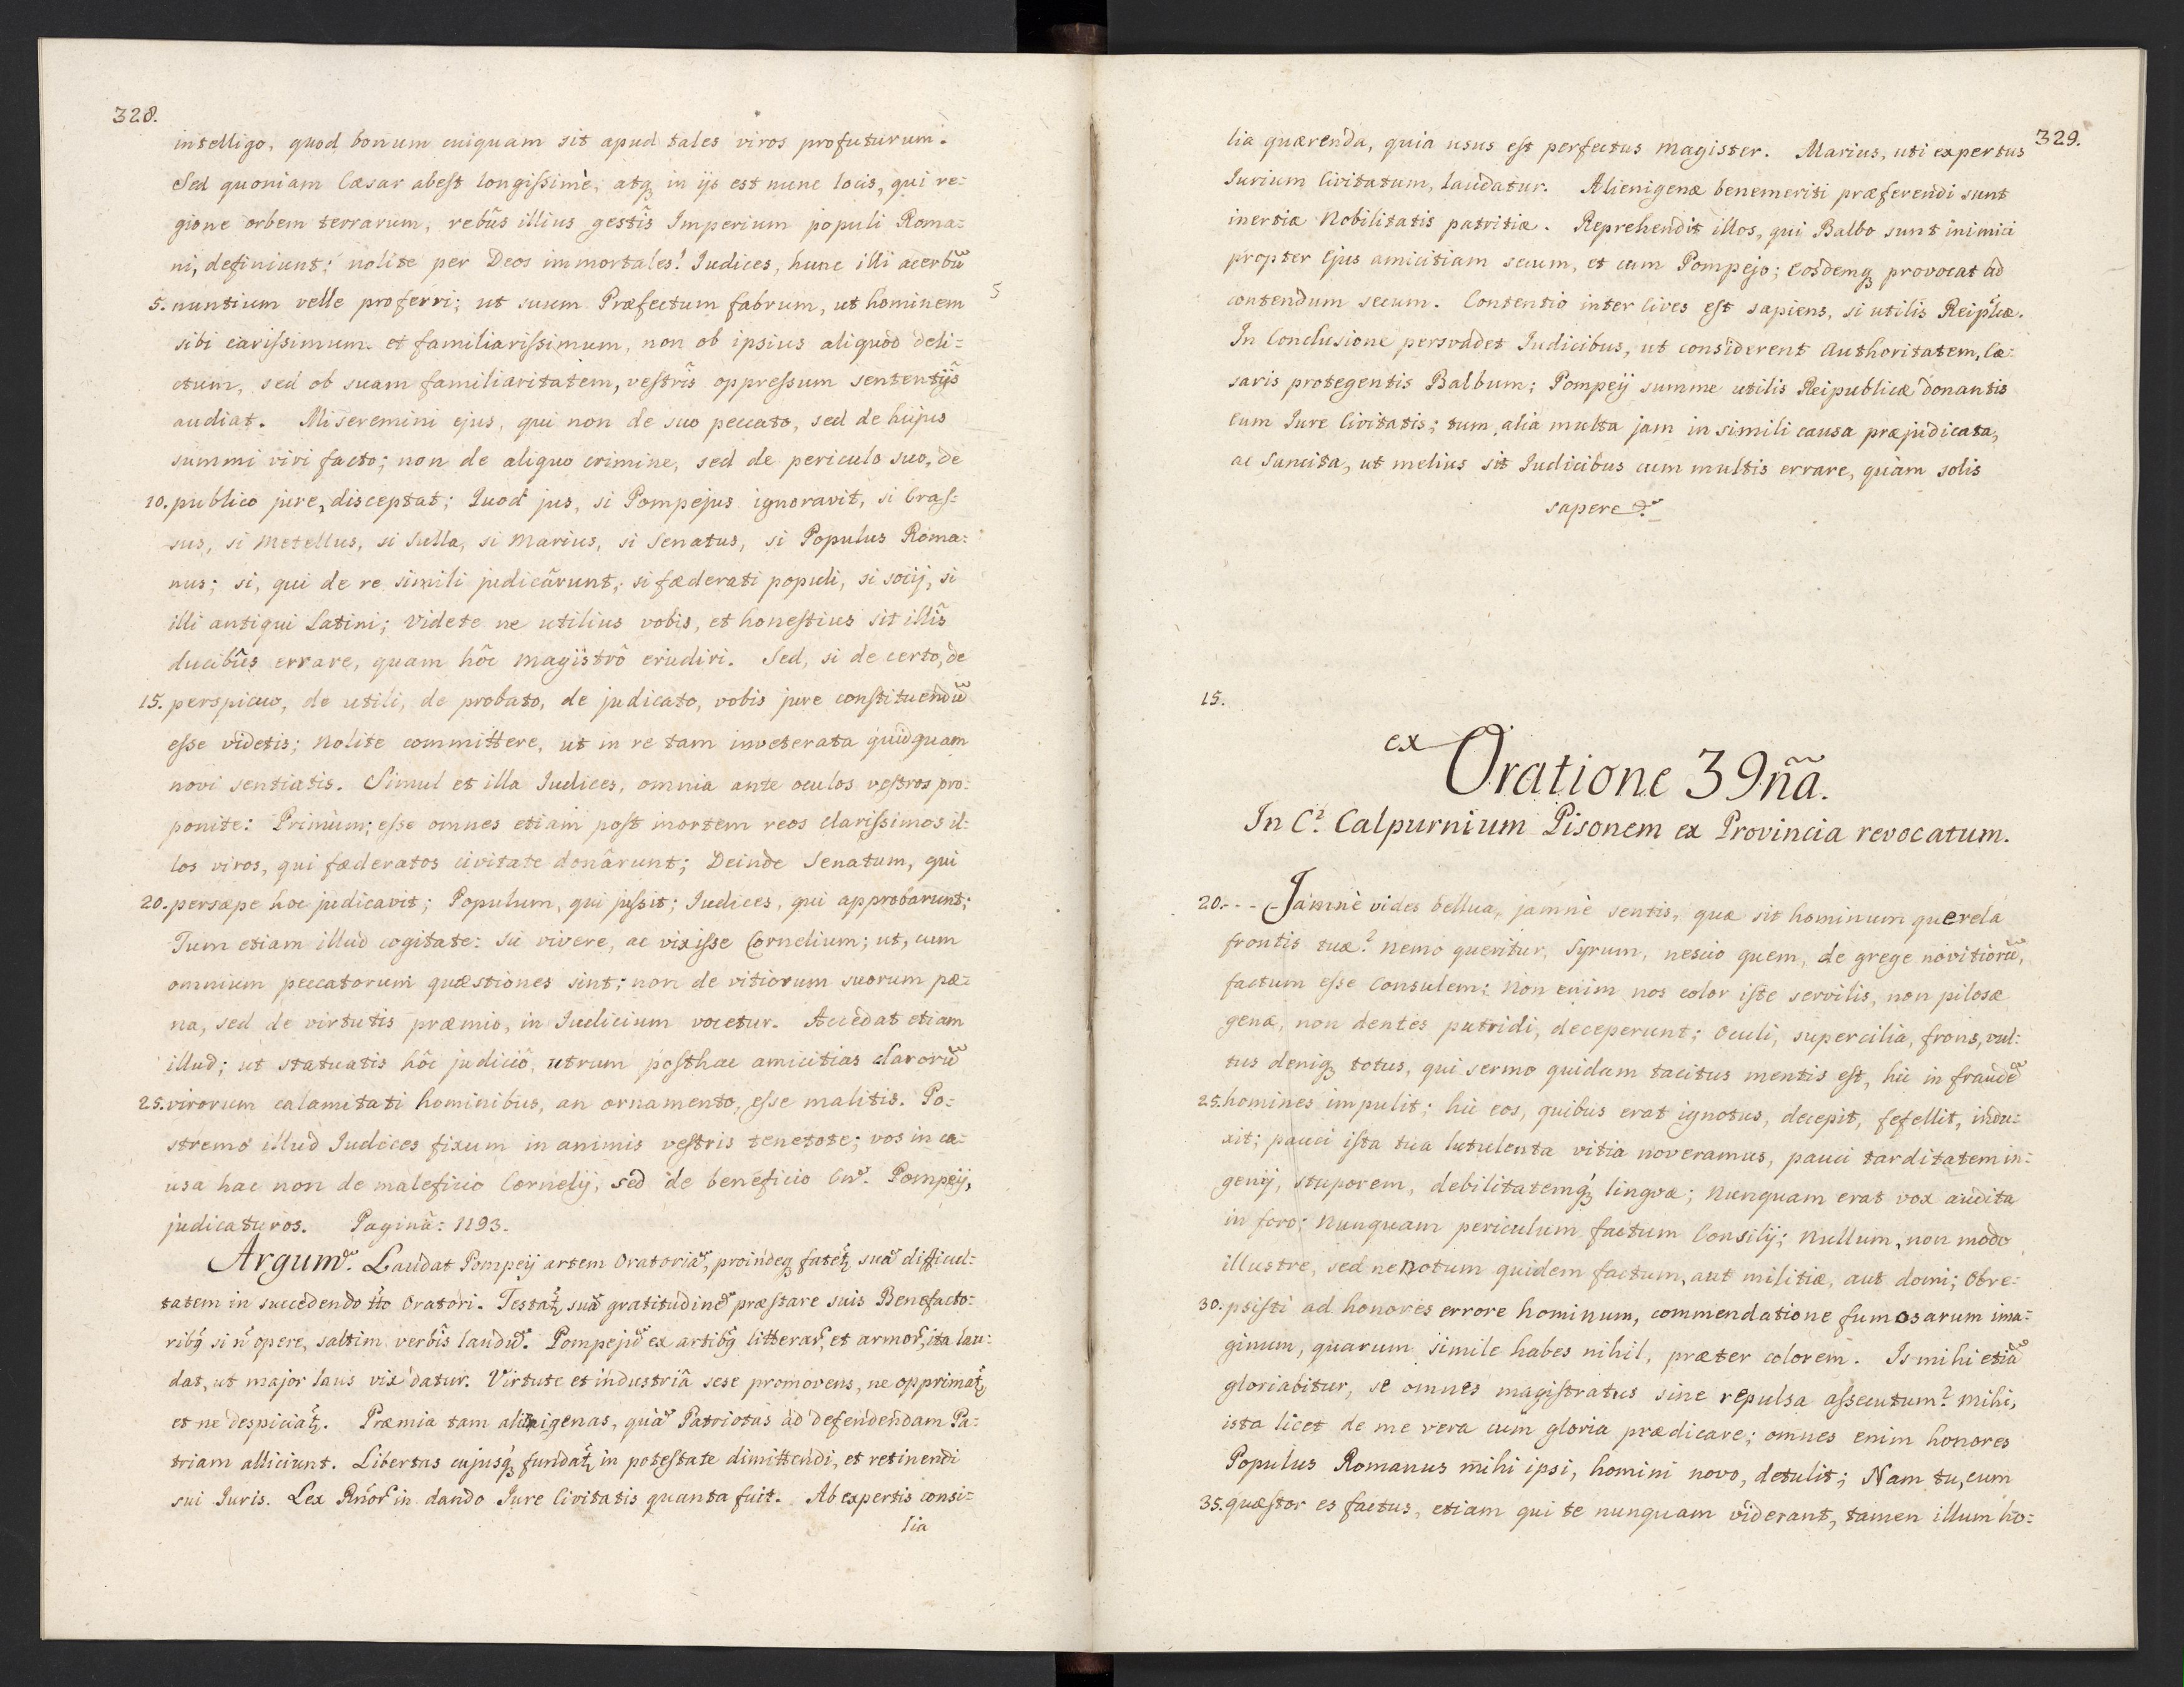 328.
intelligo, quod bonum cuiquam sit apud tales viros profuturum.
Sed quoniam Cæsar abest longissimè, atq; in ijs est nunc locis, qui re=
gione orbem terrarum, rebûs illius gestîs Imperium populi Roma=
ni, definiunt; nolite per Deos immortales! Iudices, hunc illi acerbũ
5. nuntium velle proferri; ut suum Præfectum fabrum, ut hominem
5
sibi carissimum et familiarissimum, non ob ipsius aliquod deli=
ctum, sed ob suam familiaritatem, vestrîs oppressum sententijs
audiat. Miseremini ejus, qui non de suo peccato, sed de hujus
summi viri facto; non de aliquo crimine, sed de periculo suo, de
10. publico jure, disceptat; Quod jus, si Pompejus ignoravit, si Cras=
sus, si Metellus, si Sulla, si Marius, si Senatus, si Populus Roma=
nus; si, qui de re simili judicârunt, si fæderati populi, si socij, si
illi antiqui Latini; videte ne utilius vobis, et honestius sit illîs
ducibûs errare, quam hôc magistrô erudiri. Sed, si de certo, de
15. perspicuo, de utili, de probato, de judicato, vobis jure constituendũ
esse videtis; nolite committere, ut in re tam inveterata quidquam
novi sentiatis. Simul et illa Iudices, omnia ante oculos vestros pro=
ponite: Primùm; esse omnes etiam post mortem reos clarissimos il=
los viros, qui fæderatos civitate donârunt; Deinde Senatum, qui
20. persæpe hoc judicavit; Populum, qui jussit; Iudices, qui approbarunt;
Tum etiam illud cogitate: sic vivere, ac vixisse Cornelium; ut, cum
omnium peccatorum quæstiones sint; non de vitiorum suorum pæ=
na, sed de virtutis præmio, in Iudicium vocetur. Accedat etiam
illud; ut statuatis hôc judiciô, utrum posthac amicitias clarorũ
25. virorum calamitati hominibus, an ornamento, esse malitis. Po=
stremò illud Iudices fixum in animis vestris tenetote; vos in ca=
usa hac non de maleficio Cornelij, sed de beneficio Cn. Pompeij,
judicaturos. Paginâ: 1193.
Argum. Laudat Pompeij artem Oratoriã, proindeq; fatet suã difficul=
tatem in succedendo tto Oratori. Testat, suã gratitudinẽ præstare suis Benefacto=
ribq si ñ opere, saltim verbîs laudũ. Pompejũ ex artibq litterar, et armor, ita lau=
dat, ut major laus vix datur. Virtute et industriâ sese promovens, ne opprimat,
et ne despiciat. Præmia tam alienigenas, quã Patriotas ad defendendam Pa=
triam alliciunt. Libertas cujusq; fundat in potestate dimittendi, et retinendi
sui Iuris. Lex Rnor in dando Jure Civitatis quanta fuit. Ab expertis consi=
lia
329.
lia quærenda, quia usus est perfectus magister. Marius, uti expertus
Iurium Civitatum, laudatur. Alienigenæ benemeriti præferendi sunt
inertiæ Nobilitatis patritiæ. Reprehendit illos, qui Balbo sunt inimici
propter Ejus amicitiam secum, et cum Pompejo; Eosdemq; provocat ad
contendum secum. Contentio inter Cives est sapiens, si utilis Reiplcæ.
In Conclusione persvadet Iudicibus, ut considerent Authoritatem, Cæ=
saris protegentis Balbum; Pompeij summe utilis Reipublicæ donantis
Eum Iure Civitatis; tum alia multa jam in simili causa præjudicata,
ac sancita, ut melius sit Iudicibus cum multis errare, quàm solis
sapere &
15.
ex Oratione 39nã.
In C: Calpurnium Pisonem ex Provincia revocatum.
20. - - - Jamnè vides bellua, jamnè sentis, quæ sit hominum querela
frontis tuæ? nemo queritur, Syrum, nescio quem, de grege novitiorũ,
factum esse Consulem; Non enim nos color iste servilis, non pilosæ
genæ, non dentes putridi, deceperunt; Oculi, supercilia, frons, vul=
tus deniq; totus, qui sermo quidam tacitus mentis est, hic in fraudẽ
25. homines impulit; hic eos, quibus erat ignotus, decepit, fefellit, indu=
xit; pauci ista tua lutulenta vitia noveramus, pauci tarditatem in=
genij, stuporem, debilitatemq; lingvæ; Nunquam erat vox audita
in foro; Nunquam periculum factum Consilij; Nullum, non modo
illustre, sed ne notum quidem factum, aut militiæ, aut domi; Obre=
30. psisti ad honores errore hominum, commendatione fumosarum ima=
ginum, quarum simile habes nihil, præter colorem. Is mihi etiã
gloriabitur, se omnes magistratus sine repulsa assecutum? Mihi,
ista licet de me vera cum gloria prædicare; omnes enim honores
Populus Romanus mihi ipsi, homini novo, detulit; Nam tu, cum
35. quæstor es factus, etiam qui te nunquam viderant, tamen illum ho=